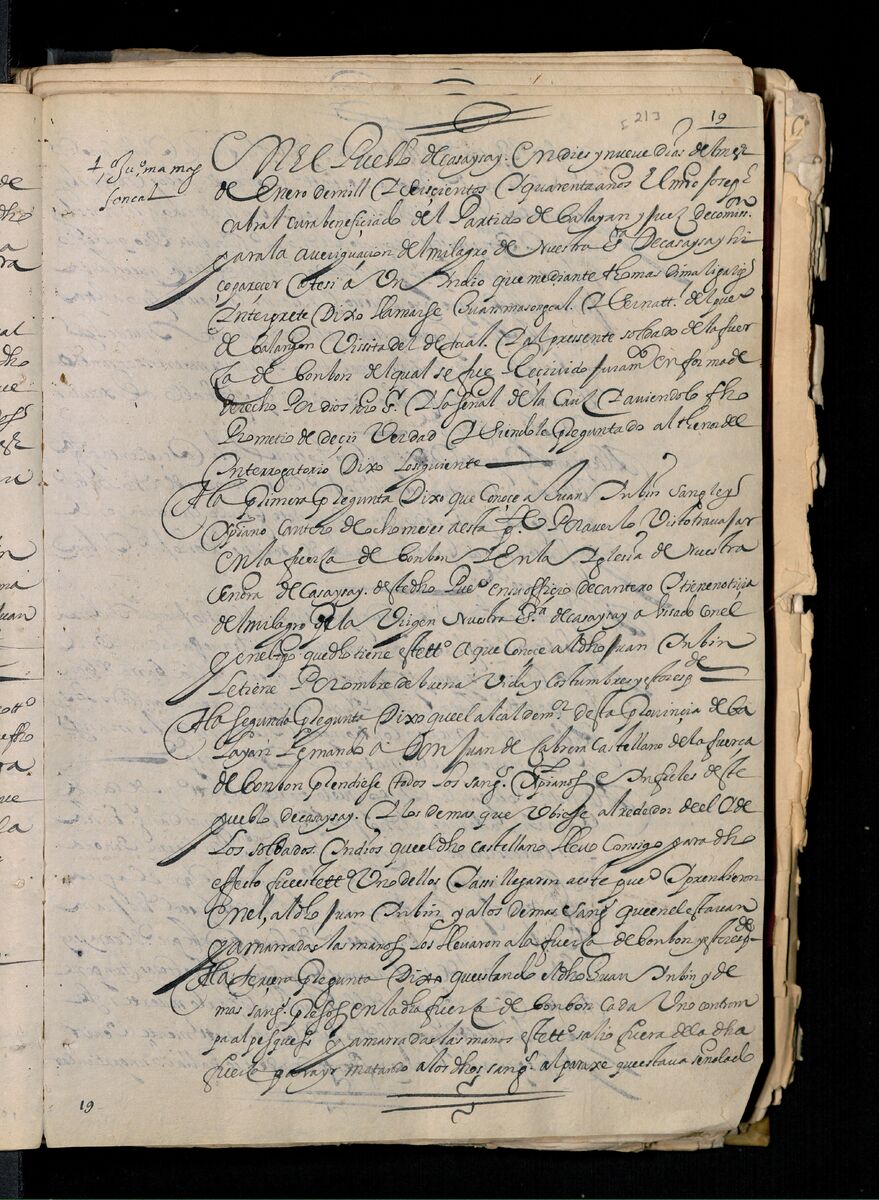 213
19
tº Juº mamas
soncal
EN El Pueblo de casaysay. En dies y nueve dias del mes
de Enero de mill E seiscientos E quarenta años El mro Joseph
cabral cura beneficiado del Partido de balayan y Juez de comisn
para la averiguacion del milagro de Nuestra Sª De casaysay hi
ço parecer ante si á Un Indio que mediante thomas
Interprete Dixo llamarse Juan masongcal. E ser natl. del pue
de balangon Vissita del de taal. E al pressente soldado de la fuer
ça de bonbon del qual se fue Recivido Juramto en forma de
derecho Por dios nro Sr. E la señal de la Cruz E aviendolo fho
Prometio de deçir Verdad E Siendole preguntado al thenor del
Interrogatorio Dixo Lo siguiente
A la primera pregunta Dixo que conoçe a Juan Inbin sangley
Xpiano Cantero de ocho meses a esta pte Por averlo Visto travajar
en la fuerça de bonbon E En la Iglesia de Nuestra
Señora de Casaysay. de este dho Pueº en su officio de cantero E tiene notiçia
del milagro de la Virgen Nuestra Sª de casaysay
y en el tpo que dho tiene este ttº a que Conoce al dho Juan Inbin
Le tiene Por ombre de buena Vida y Costumbres y esto respde
A la segunda pregunta Dixo que el alcalde mor desta provinçia de ba
layan Le mando á Don Juan de Cabrera Castellano de la fuerça
de bonbon prendiese todos los sangs. Xpianos E Infieles deste
pueblo de casaysay. E los demas que Ubiesse al rededor de el E de
Los soldados. E indios que el dho castellano llevo Consigo para dho
effecto fue este ttº Uno dellos E assi llegaron a este pueº E prendieron
En el, al dho Juan Inbin y a los demas sangs que en el estavan
y amarradas las manos los llevaron a la fuerça de bonbon y esto respde
A la terçera pregunta Dixo que estando el dho Juan Inbin y de
mas sangs. presos en la dha fuerça de bonbon cada Uno con tron
pa al pesqueso y amarradas las manos este ttº salio fuera de la dha
fuerça para yr matando a los dhos sangs. al paraxe que estava señalado
19